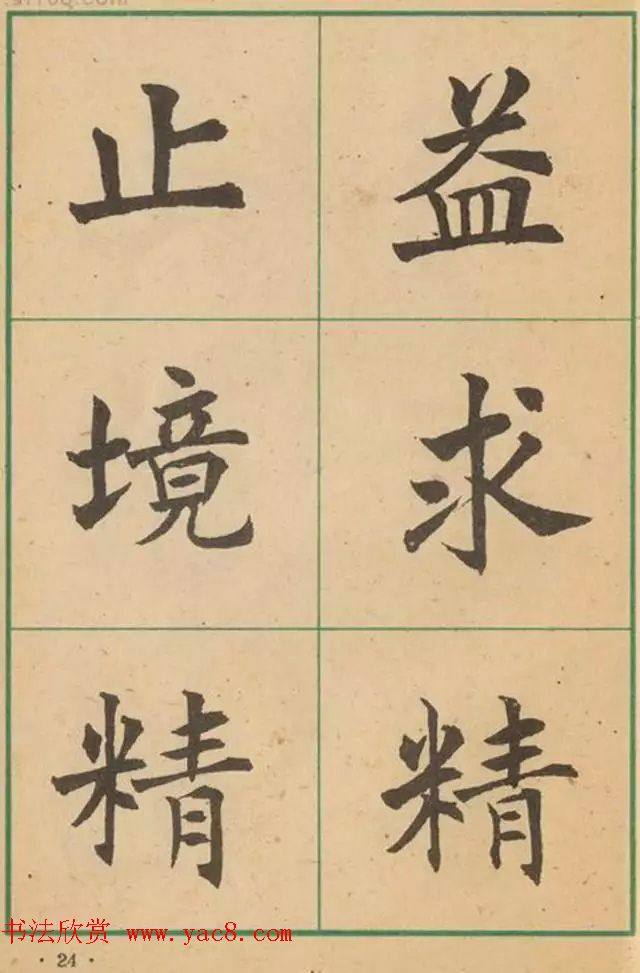 益求精
止境精
书法欣赏 www.yac8.com
· 24 ·